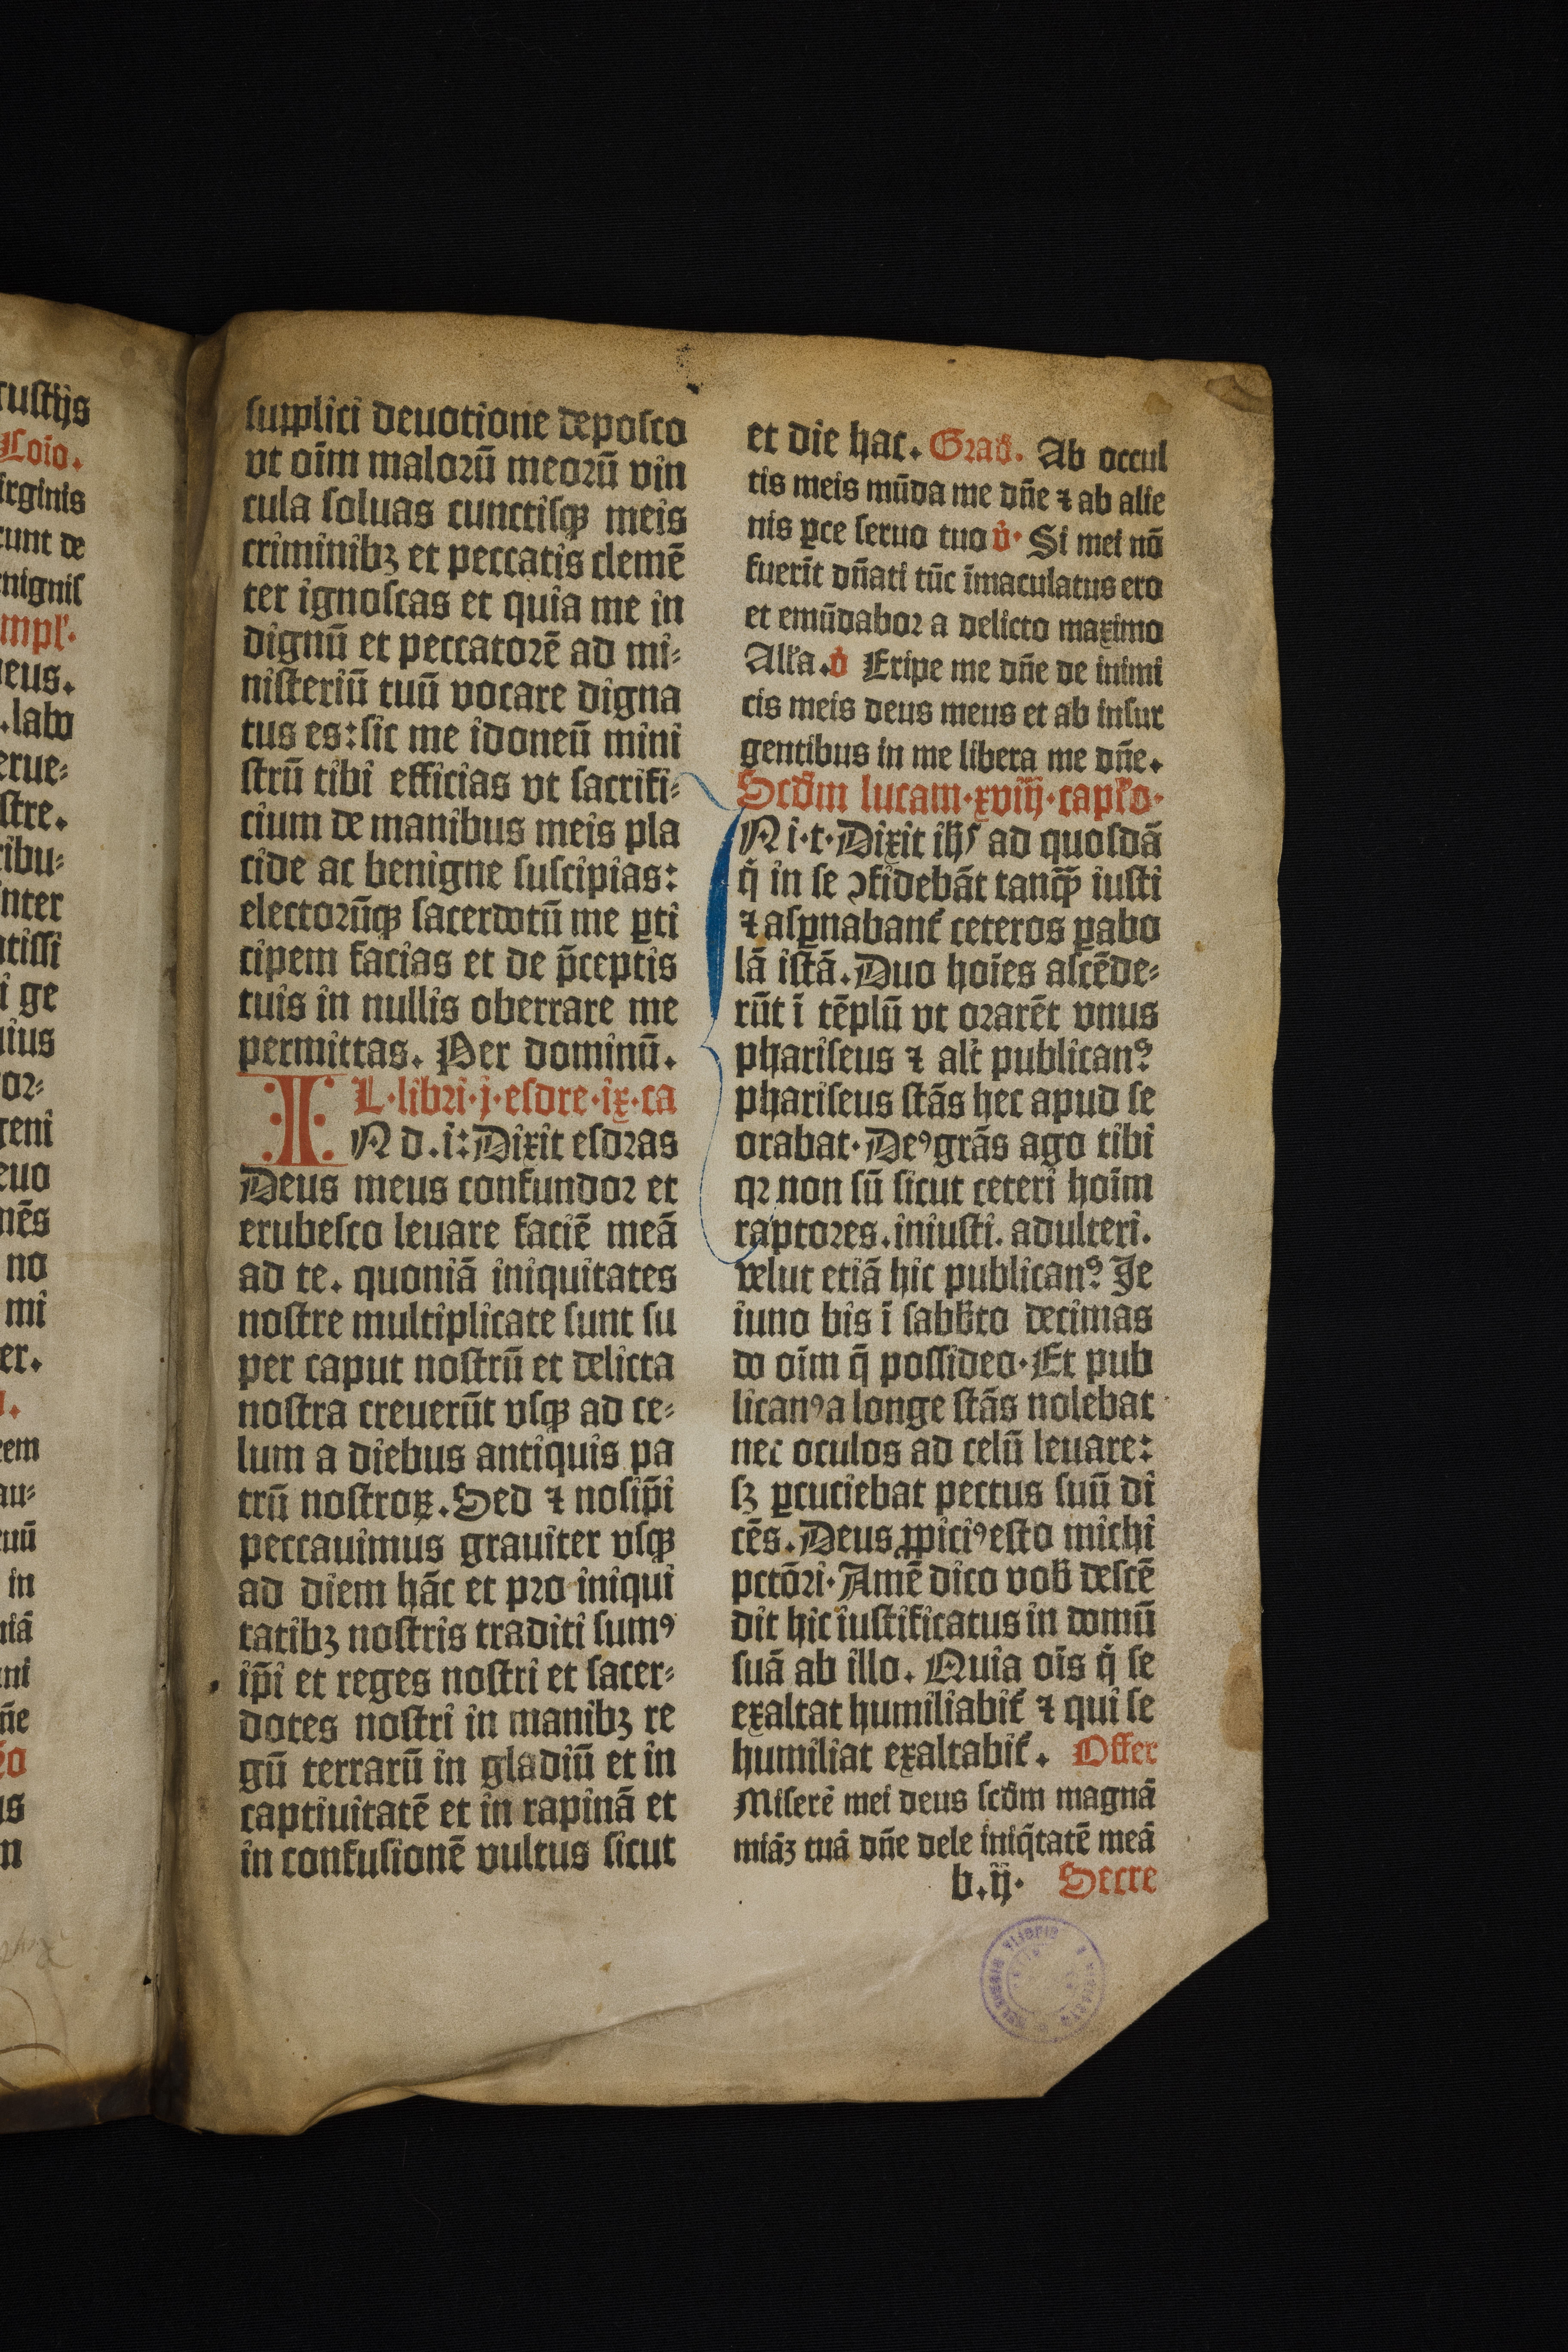 rustijs
Coīo.
irginis
runt de
nignis
mpl'.
eus.
.labo
erue-
stre.
ribu-
nter
tissi
i ge
uius
or-
geni
euo
nēs
no
mi
er.
rem
au-
uū
in
niā
ni
n̄e
us
m
supplici deuotione deposco
vt oīm maloꝝū meorū vin
cula soluas cunctisqꝫ meis
criminibꝫ et peccatis clemē
ter ignoscas et quia me in
dignū et peccatorē ad mi-
nisteriū tuū vocare digna
tus es: sic me idoneū mini
strū tibi efficias vt sacrifi-
cium de manibus meis pla
cide ac benigne suscipias:
electorūqꝫ sacerdotū me ꝑti
cipem facias et de p̄ceptis
tuis in nullis oberrare me
permittas. Per dominū.
L. libri. j. esdre. ix. ca
IN d. i: Dixit esdras
Deus meus confundor et
erubesco leuare faciē meā
ad te. quoniā iniquitates
nostre multiplicate sunt su
per caput nostrū et delicta
nostra creuerūt vsqꝫ ad ce-
lum a diebus antiquis pa
trū nostroꝝ. Sed ⁊ nosip̄i
peccauimus grauiter vsqꝫ
ad diem hāc et pro iniqui
tatibꝫ nostris traditi sumꝰ
ip̄i et reges nostri et sacer-
dotes nostri in manibꝫ re
gū terrarū in gladiū et in
captiuitatē et in rapinā et
in confusionē vultus sicut
et die hac. Grad̄. Ab occul
tis meis mūda me dn̄e ⁊ ab alie
nis ꝑce seruo tuo v̇. Si mei nō
fuerīt dn̄ati tūc īmaculatus ero
et emūdabor a delicto maximo
All'a. v̇ Eripe me dn̄e de inimi
cis meis deus meus et ab insur
gentibus in me libera me dn̄e.
Scd̄m lucam. xviij. capl'o.
IN i. t. Dixit ih̄s ad quosdā
q̇ in se ꝯfidebāt tanqꝫ̄ iusti
⁊ asꝑnabant᷑ ceteros ꝑabo
lā istā. Duo hoīes ascēde-
rūt ī tēplū vt orarēt vnus
phariseus ⁊ alt᷑ publicanꝰ
phariseus stās hec apud se
orabat. Deꝰ grās ago tibi
qꝛ non sū sicut ceteri hoīm
raptores. iniusti. adulteri.
velut etiā hic publicanꝰ. Ie
iuno bis ī sabb̄to decimas
do oīm q̄ possideo. Et pub
licanꝰ a longe stās nolebat
nec oculos ad celū leuare:
sꝫ ꝑcuciebat pectus suū di
cēs. Deus ꝓpiciꝰ esto michi
pctōri. Amē dico vob̄ descē
dit hic iustificatus in domū
suā ab illo. Quia oīs q̇ se
exaltat humiliabit᷑ ⁊ qui se
humiliat exaltabit᷑. Offer
Miserē mei deus scd̄m magnā
miāꝫ tuā dn̄e dele iniq̇tatē meā
b. ij. Secre